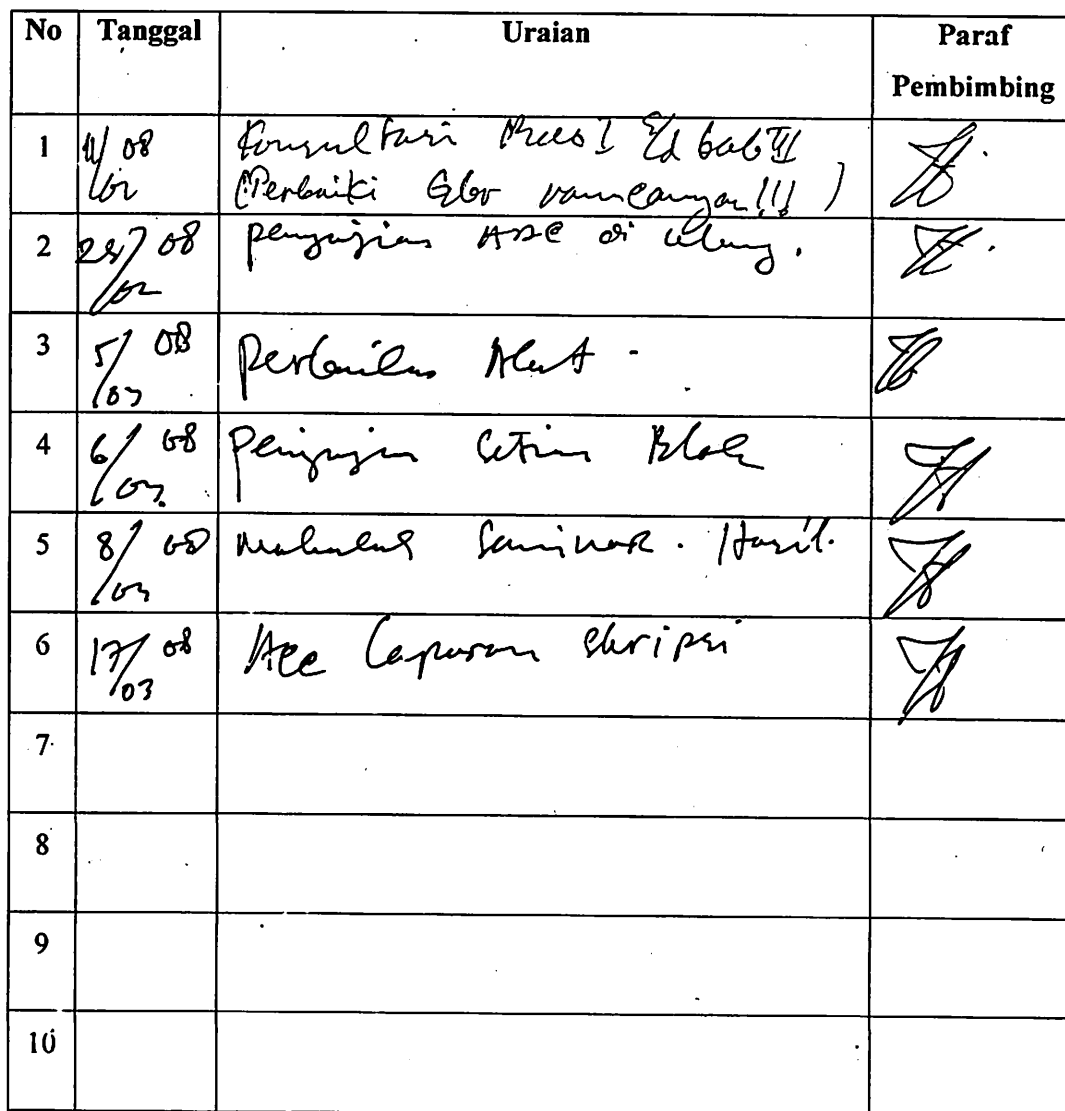 No Tanggal Uraian Paraf
Pembimbing
1 11/02 08 Konsultasi Bab I s/d bab III
(Perbaiki Gbr rancangan!!! )
2 28/02 08 pengujian ADC di ulang.
3 5/03 08 perbaikan Alat
4 6/03 08 pengujian Setiap Blok
5 8/03 08 makalah Seminar Hasil.
6 17/03 08 Acc Laporan skripsi
7
8
9
10